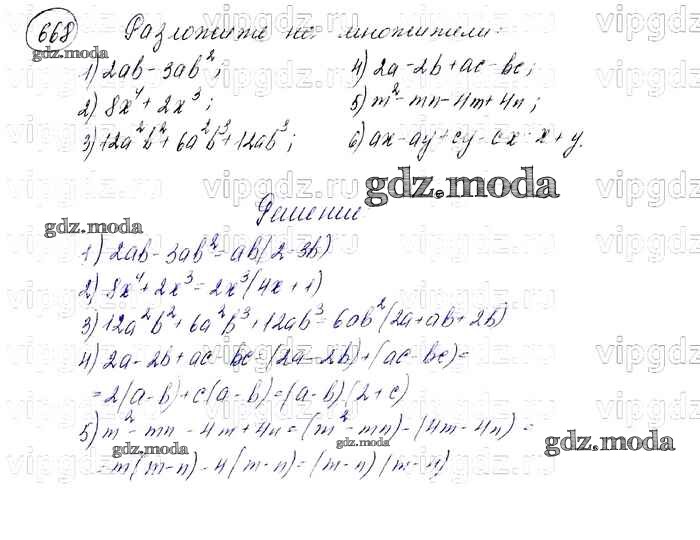 668 Разложите на множители:
1) 2ab - 3ab²;
2) 8x⁴ + 2x³;
3) 12a²b² + 6a²b³ + 12ab³;
4) 2a - 2b + ac - bc;
5) m² - mn - 4m + 4n;
6) ax - ay + cy - cx - x + y.
Решение
1) 2ab - 3ab² = ab(2 - 3b)
2) 8x⁴ + 2x³ = 2x³(4x + 1)
3) 12a²b² + 6a²b³ + 12ab³ = 6ab²(2a + ab + 2b)
4) 2a - 2b + ac - bc = (2a - 2b) + (ac - bc) =
= 2(a - b) + c(a - b) = (a - b)(2 + c)
5) m² - mn - 4m + 4n = (m² - mn) - (4m - 4n) =
= m(m - n) - 4(m - n) = (m - n)(m - 4)
gdz.moda
gdz.moda
gdz.moda
gdz.moda
gdz.moda
gdz.moda
vipgdz.ru